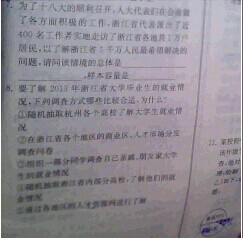 7. 为了十八大的顺利召开,人大代表们在会前做
了各方面积极的工作,浙江省代表派出了近
400名工作者实地走访了浙江省各地共1万户
居民,以了解浙江省5千万人民最希望解决的
问题,请问该情境的总体是
,样本容量是
8. 要了解2013年浙江省大学毕业生的就业情
况,下列调查方式哪些比较合适,为什么?
①随机抽取杭州各个高校了解大学生就业情
况
②在浙江省各个地区的商业区、人才市场分发
调查问卷
③组织一部分同学调查自己亲戚、朋友家大学
生的就业情况
④随机抽取浙江省内部分高校,了解他们的就
业情况
⑤通过各地区的人才资源网进行了解